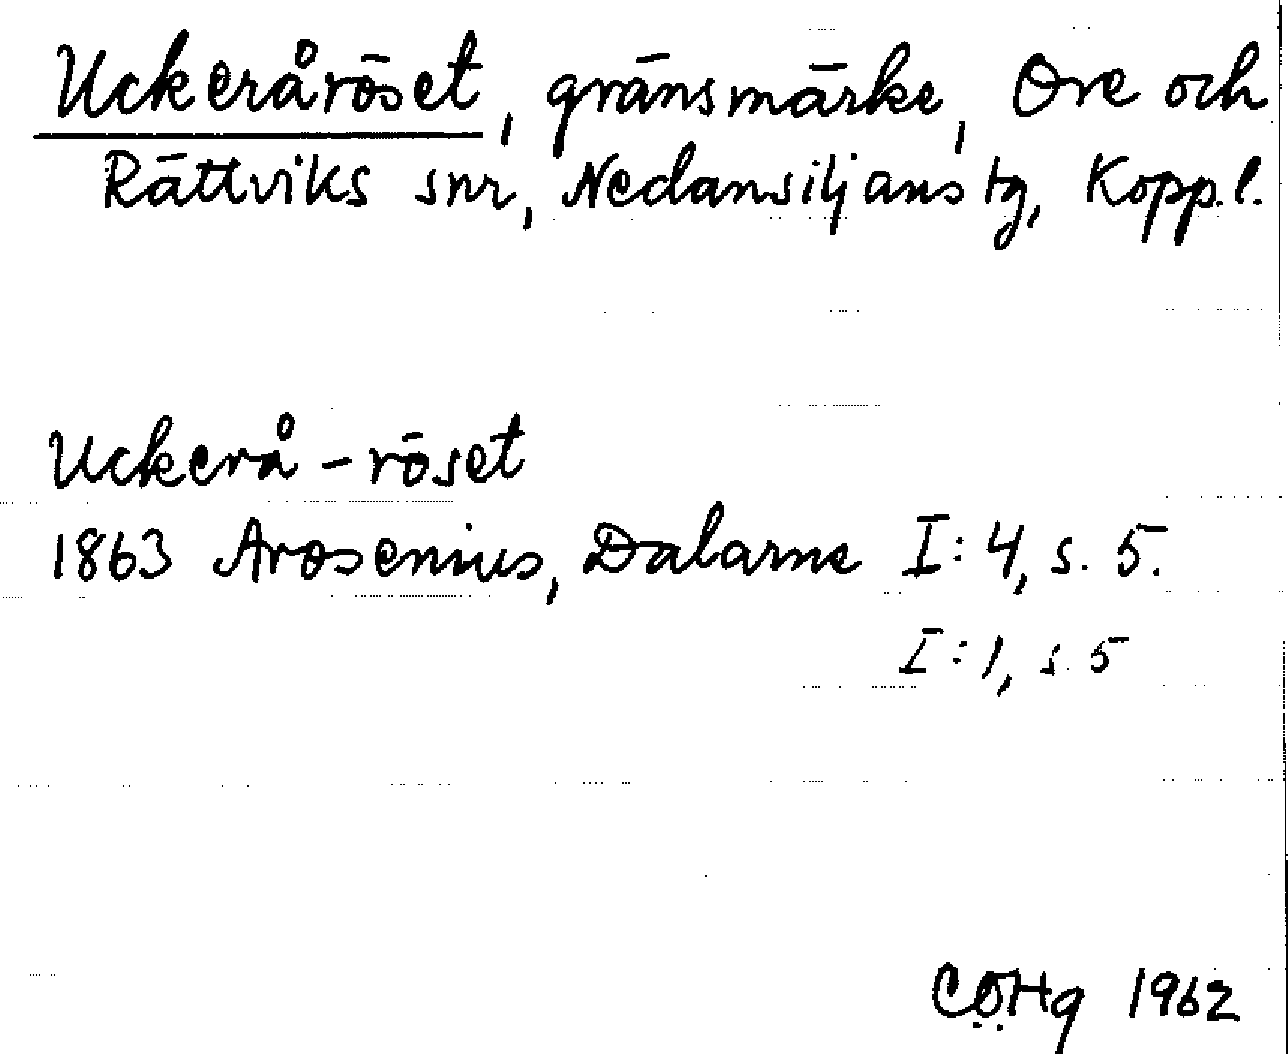 Uckeråröset, gränsmärke, Ore och
Rättviks snr, Nedansiljans tg, Kopp.l.
Uckerå-röset
1863 Arosenius, Dalarne I:4, s. 5.
I:1, s. 5
CÖHg 1962